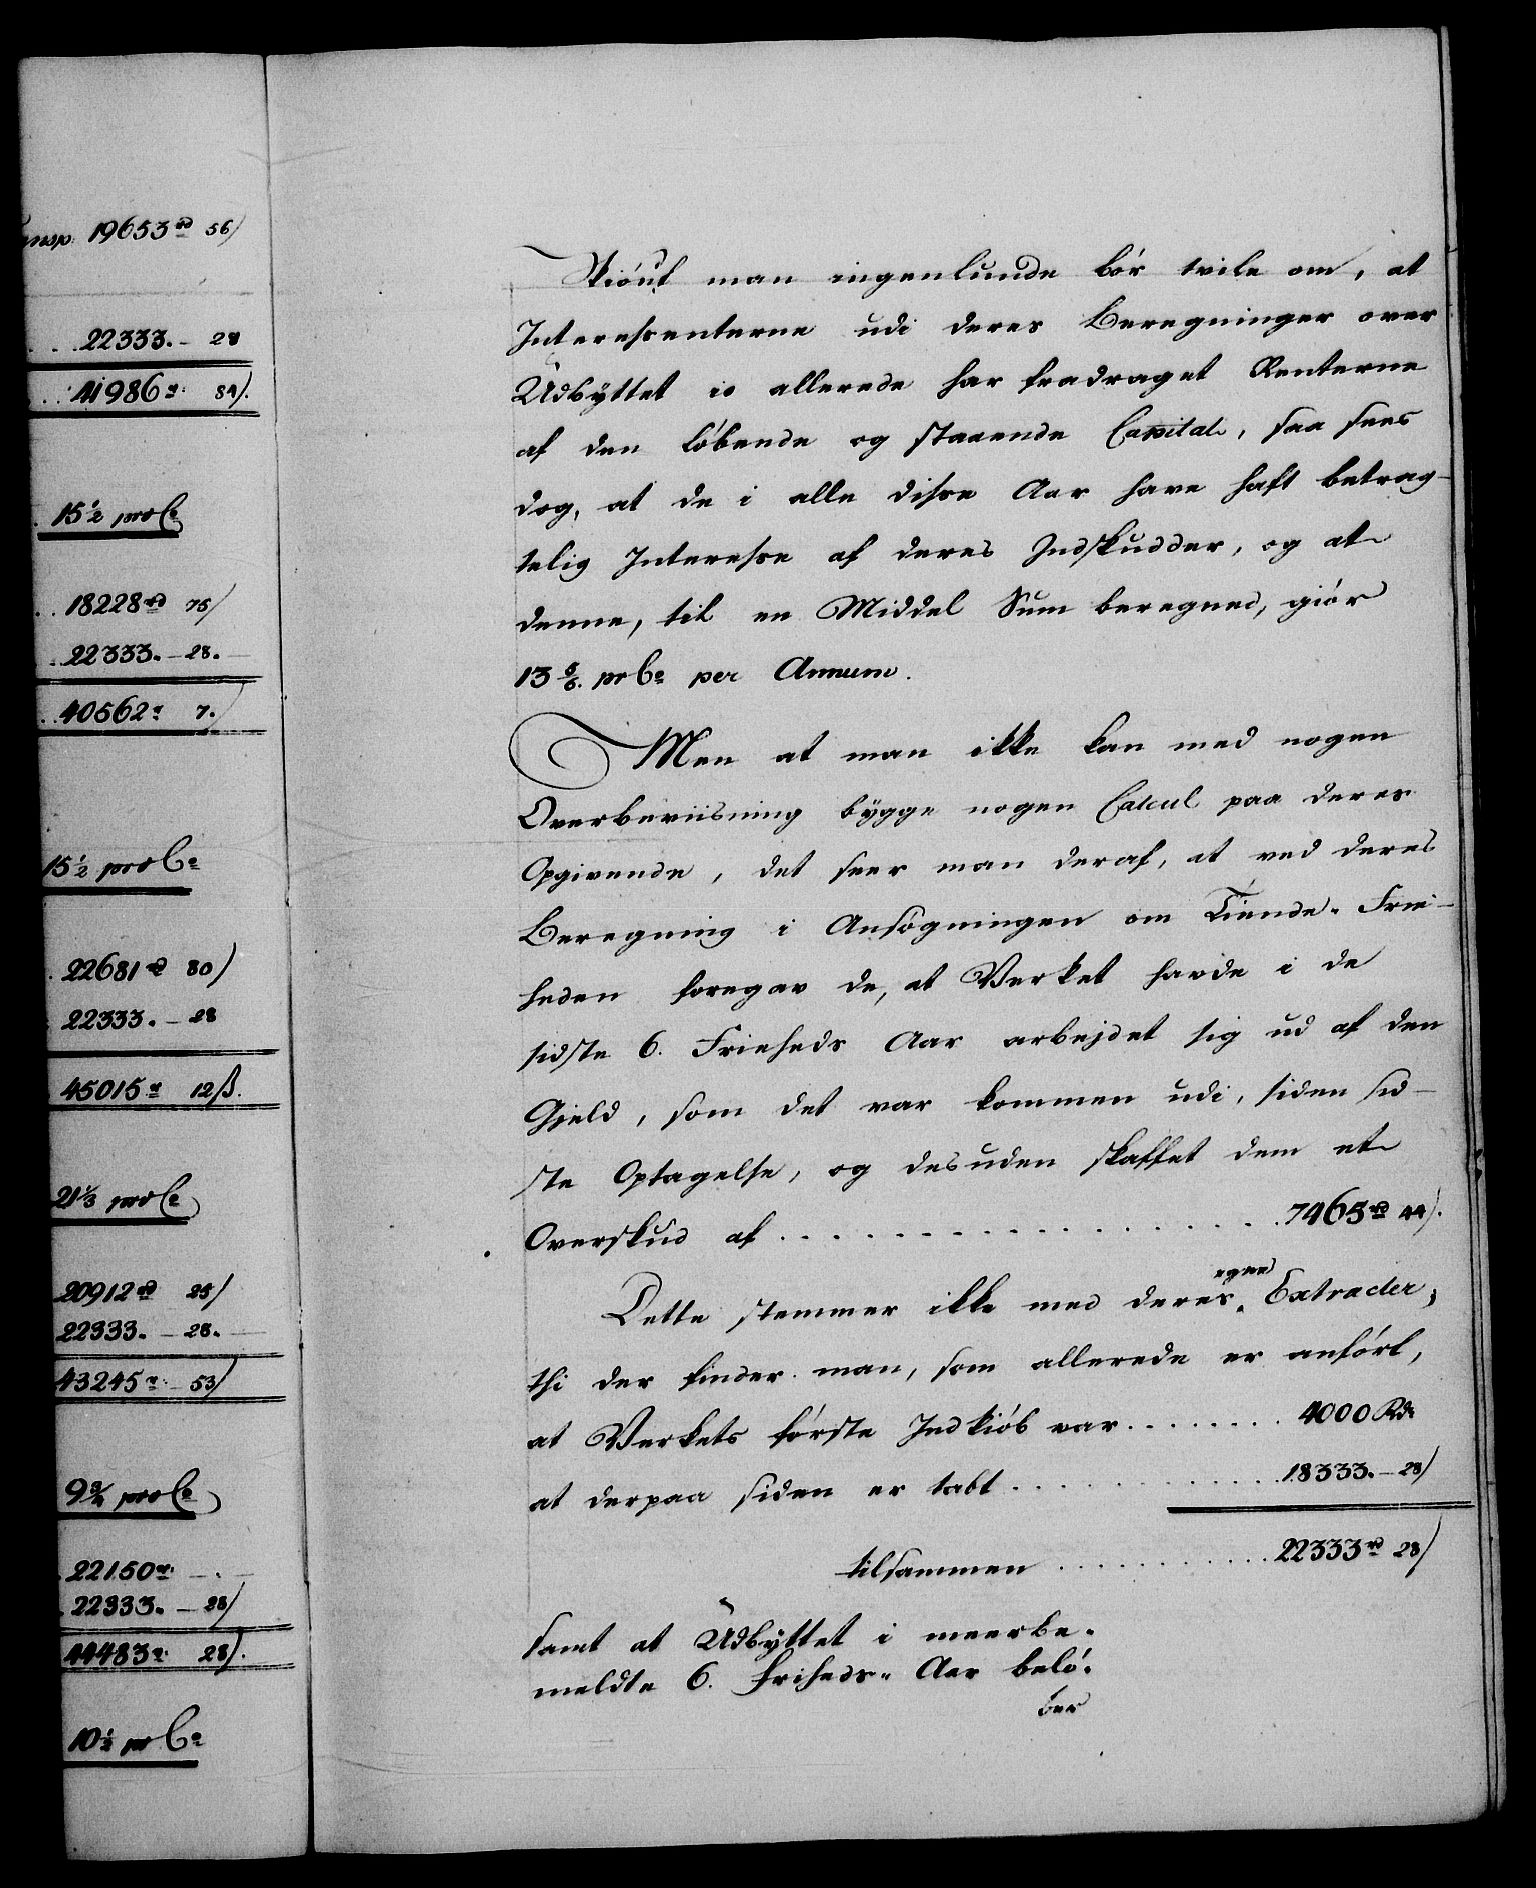 Transp: 19653 rd 56/
22333. – 28
41986 rd: 84/.
15 1/2 pro Co
18228 rd 75/
22333. – 28.
40562 rd 7.
15 1/2 pro Co
22681 rd 80/
22333. – 28
45015 rd 12 ß.
21 1/3 pro Co
20912 rd 25/
22333. – 28.
43245 rd: 53/
9 3/4 pro Co
22150 rd: – . –
22333. – 28/
44483 rd: 28/.
10 1/2 pr Co
Skiönt man ingenlunde bör tvile om, at
Interessenterne udi deres Beregninger over
Udbyttet jo allerede har fradraget Renterne
af den löbende og staaende Capital, saa sees
dog, at de i alle disse Aar have haft betrag-
telig Interesse af deres Indskudder, og at
denne, til en Middel Sum beregned, giör
13 5/6. pr Co per Annum.
Men at man ikke kan med nogen
Overbeviisning bygge nogen Calcul paa deres
Opgivende, det seer man deraf, at ved deres
Beregning i Ansögningen om Tiende-Frie-
heden foregav de, at Verket havde i de
sidste 6. Frieheds Aar arbejdet sig ud af den
Gjeld, som det var kommen udi, siden sid-
ste Optagelse, og desuden skaffet dem et
Overskud af . . . . . . . . . . . . . . . . . 7465 rd 44/.
Dette stemmer ikke med deres egne Extracter,
thi der finder man, som allerede er anfört,
at Verkets förste Indkiöb var . . . . . . . . 4000 Rd
at derpaa siden er tabt . . . . . . . . . . . 18333. – 28/
tilsammen . . . . . . . . . . . 22333 rd 28/
samt at Udbyttet i meerbe-
meldte 6. Friheds-Aar belö-
ber